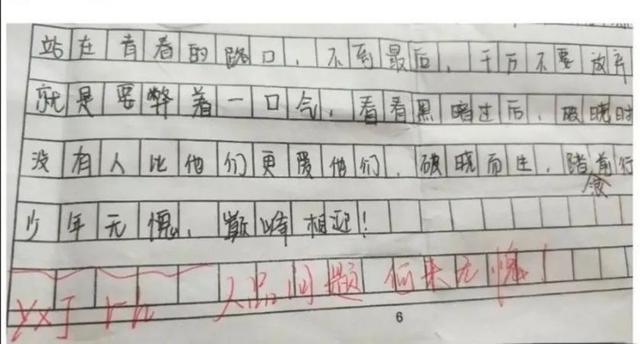 站在青春的路口，不到最后，千万不要放弃
就是要弊着一口气，看看黑暗过后，破晓时
没有人比他们更爱他们，破晓而生，踏前行
愈
少年无愧，巅峰相迎！
yxj rh 人品问题 何来无愧！
6